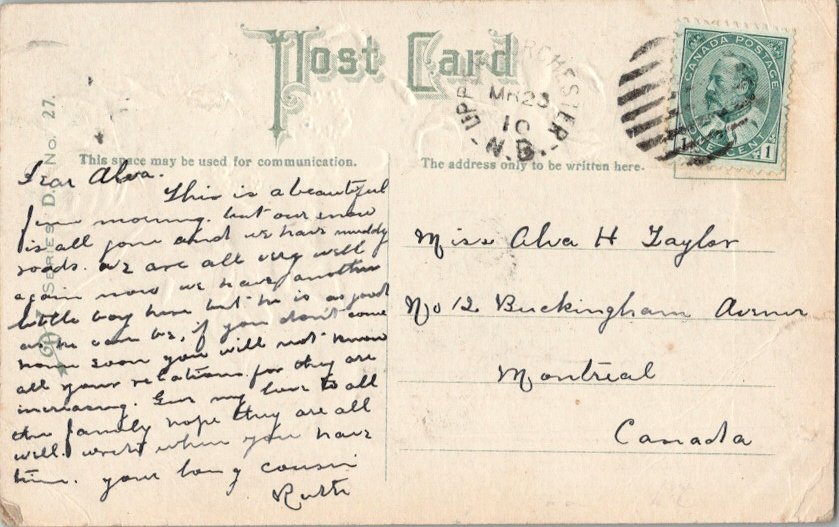 Post Card
UPP DORCHESTER
MR 23
10
N.B.
CANADA POSTAGE
ONE CENT
1 1
SERIES D. No. 27.
This space may be used for communication.
The address only to be written here.
Dear Alva.
This is a beautiful
fine morning. but our snow
is all gone and we have muddy
roads. we are all very well
again now we have another
little boy here but he is as good
as he can be, if you don't come
home soon you will not know
all your relations for they are
increasing. Give my love to all
the family hope they are all
well. write when you have
time. your loving cousin
Ruth
Miss Alva H Taylor
No 12 Buckingham Avenue
Montreal
Canada